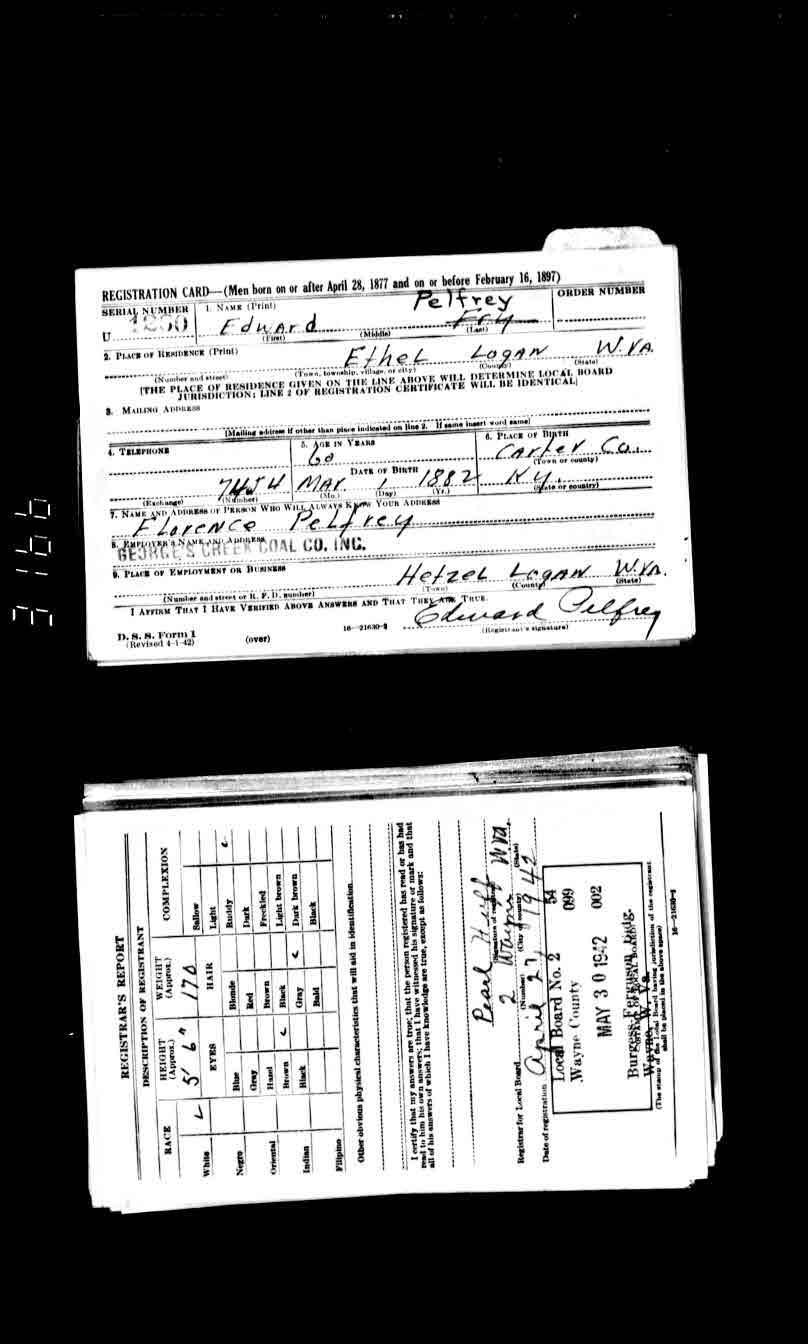 REGISTRATION CARD—(Men born on or after April 28, 1877 and on or before February 16, 1897)
SERIAL NUMBER
1. NAME (Print)
Pelfrey
ORDER NUMBER
U 1250
Edward
Fry
(First) (Middle) (Last)
2. PLACE OF RESIDENCE (Print)
Ethel Logan W.VA.
(Number and street) (Town, township, village, or city) (County) (State)
[THE PLACE OF RESIDENCE GIVEN ON THE LINE ABOVE WILL DETERMINE LOCAL BOARD
JURISDICTION; LINE 2 OF REGISTRATION CERTIFICATE WILL BE IDENTICAL]
3. MAILING ADDRESS
[Mailing address if other than place indicated on line 2. If same insert word same]
4. TELEPHONE
5. AGE IN YEARS
6. PLACE OF BIRTH
60
Carter Co.
(Town or county)
DATE OF BIRTH
7454 Mar. 1 1882 Ky.
(Exchange) (Number) (Mo.) (Day) (Yr.) (State or country)
7. NAME AND ADDRESS OF PERSON WHO WILL ALWAYS KNOW YOUR ADDRESS
Florence Pelfrey
8. EMPLOYER'S NAME AND ADDRESS
GEORGE'S CREEK COAL CO. INC.
9. PLACE OF EMPLOYMENT OR BUSINESS
Hetzel Logan W.VA.
(Number and street or R. F. D. number) (Town) (County) (State)
I AFFIRM THAT I HAVE VERIFIED ABOVE ANSWERS AND THAT THEY ARE TRUE.
Edward Pelfrey
D. S. S. Form 1
(Revised 4-1-42)
(over)
16—21630-2
(Registrant's signature)
3166
REGISTRAR'S REPORT
DESCRIPTION OF REGISTRANT
RACE
HEIGHT
(Approx.)
WEIGHT
(Approx.)
COMPLEXION
5' 6"
170
EYES
HAIR
White
Negro
Oriental
Indian
Filipino
Blue
Gray
Hazel
Brown
Black
Blonde
Red
Brown
Black
Gray
Bald
Sallow
Light
Ruddy
Dark
Freckled
Light brown
Dark brown
Black
Other obvious physical characteristics that will aid in identification
I certify that my answers are true; that the person registered has read or has had
read to him his own answers; that I have witnessed his signature or mark and that
all of his answers of which I have knowledge are true, except as follows:
Pearl Huff
(Signature of registrar)
Registrar for Local Board 2 Wayne W.Va.
(Number) (City or county) (State)
Date of registration April 27, 1942
Local Board No. 2 54
Wayne County 099
MAY 30 1942 002
Burgess-Ferguson Bldg.
Wayne, W. Va.
(STAMP OF LOCAL BOARD)
(The stamp of the Local Board having jurisdiction of the registrant
shall be placed in the above space)
16—21630-1